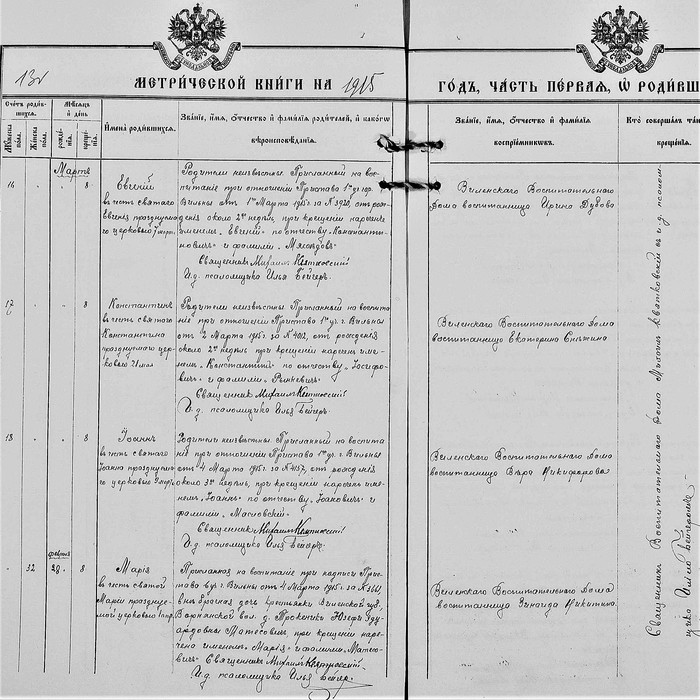 132
МЕТРИЧЕСКОЙ КНИГИ НА 1915
ГОДЪ, ЧАСТЬ ПЕРВАЯ, Ѡ РОДИВШ
Счетъ родив-
шихся.
Мужеска пола.
Женска пола.
Мѣсяцъ и день
рожде-
нія.
креще-
нія.
Имена родившихся.
Званіе, имя, отчество и фамилія родителей, и какого
вѣроисповѣданія.
Званіе, имя, отчество и фамилія
воспріемниковъ.
Кто совершалъ таи
крещенія.
Мартъ
16 8
Евгеній
въ честь святого
Евгенія празднуема-
го церковью 7 марта
Родители неизвѣстны. Присланный на вос-
питаніе при отношеніи Пристава 1го уч. г.
Вильны отъ 1го Марта 1915 г. за № 3920, отъ рож-
денія около 2хъ недѣль, при крещеніи нареченъ
именемъ „Евгеній" по отчеству „Константи-
новичъ" и фамиліи
Священникъ Михаилъ
И.д. псаломщика Илья Бейгеръ.
Виленскаго Воспитательнаго
Дома воспитанница Ирина Дубова
17 8
Константинъ
въ честь святаго
Константина
празднуемаго цер-
ковью 21 мая
Родители неизвѣстны Присланный на воспита-
ніе при отношеніи Пристава 1го уч. г. Вильны
отъ 2 Марта 1915 г. за № 4012, отъ рожденія
около 2хъ недѣль при крещеніи нареченъ име-
немъ „Константинъ" по отчеству „Іосифо-
вичъ" и фамиліи „Рынкевичъ"
Священникъ Михаилъ
И.д. псаломщика Илья Бейгеръ.
Виленскаго Воспитательнаго Дома
воспитанница Екатерина
18 8
Іоаннъ
въ честь святаго
Іоанна празднуема-
го церковью
Родители неизвѣстны Присланный на воспита-
ніе при отношеніи Пристава 1го уч. г. Вильны
отъ 4 Марта 1915 г. за № 4157, отъ рожденія
около 3хъ недѣль, при крещеніи нареченъ име-
немъ „Іоаннъ" по отчеству „Іоановичъ" и
фамиліи „Масловскій"
Священникъ Михаилъ
И.д. псаломщика Илья Бейгеръ
Виленскаго Воспитательнаго Дома
воспитанница Вѣра Никифорова
февраля
32 28 8
Марія
въ честь святой
Маріи празднуе-
мой церковью
Присланная на воспитаніе при надписи Прис-
тава уч. г. Вильны отъ 4 Марта 1915 г. за №
внѣбрачная дочь крестьянки Виленской губ.,
Ворнянской вол. д. Юзефы Эду-
ардовны Матосевичъ, при крещеніи наре-
чена именемъ „Марія" и фамиліи „Матосе-
вичъ" Священникъ Михаилъ
И.д. псаломщика Илья Бейгеръ.
Виленскаго Воспитательнаго Дома
воспитанница Зинаида Никитина
Священникъ Воспитательнаго Дома Михаилъ и и.д. псалом-
щика Илья Бейгеръ